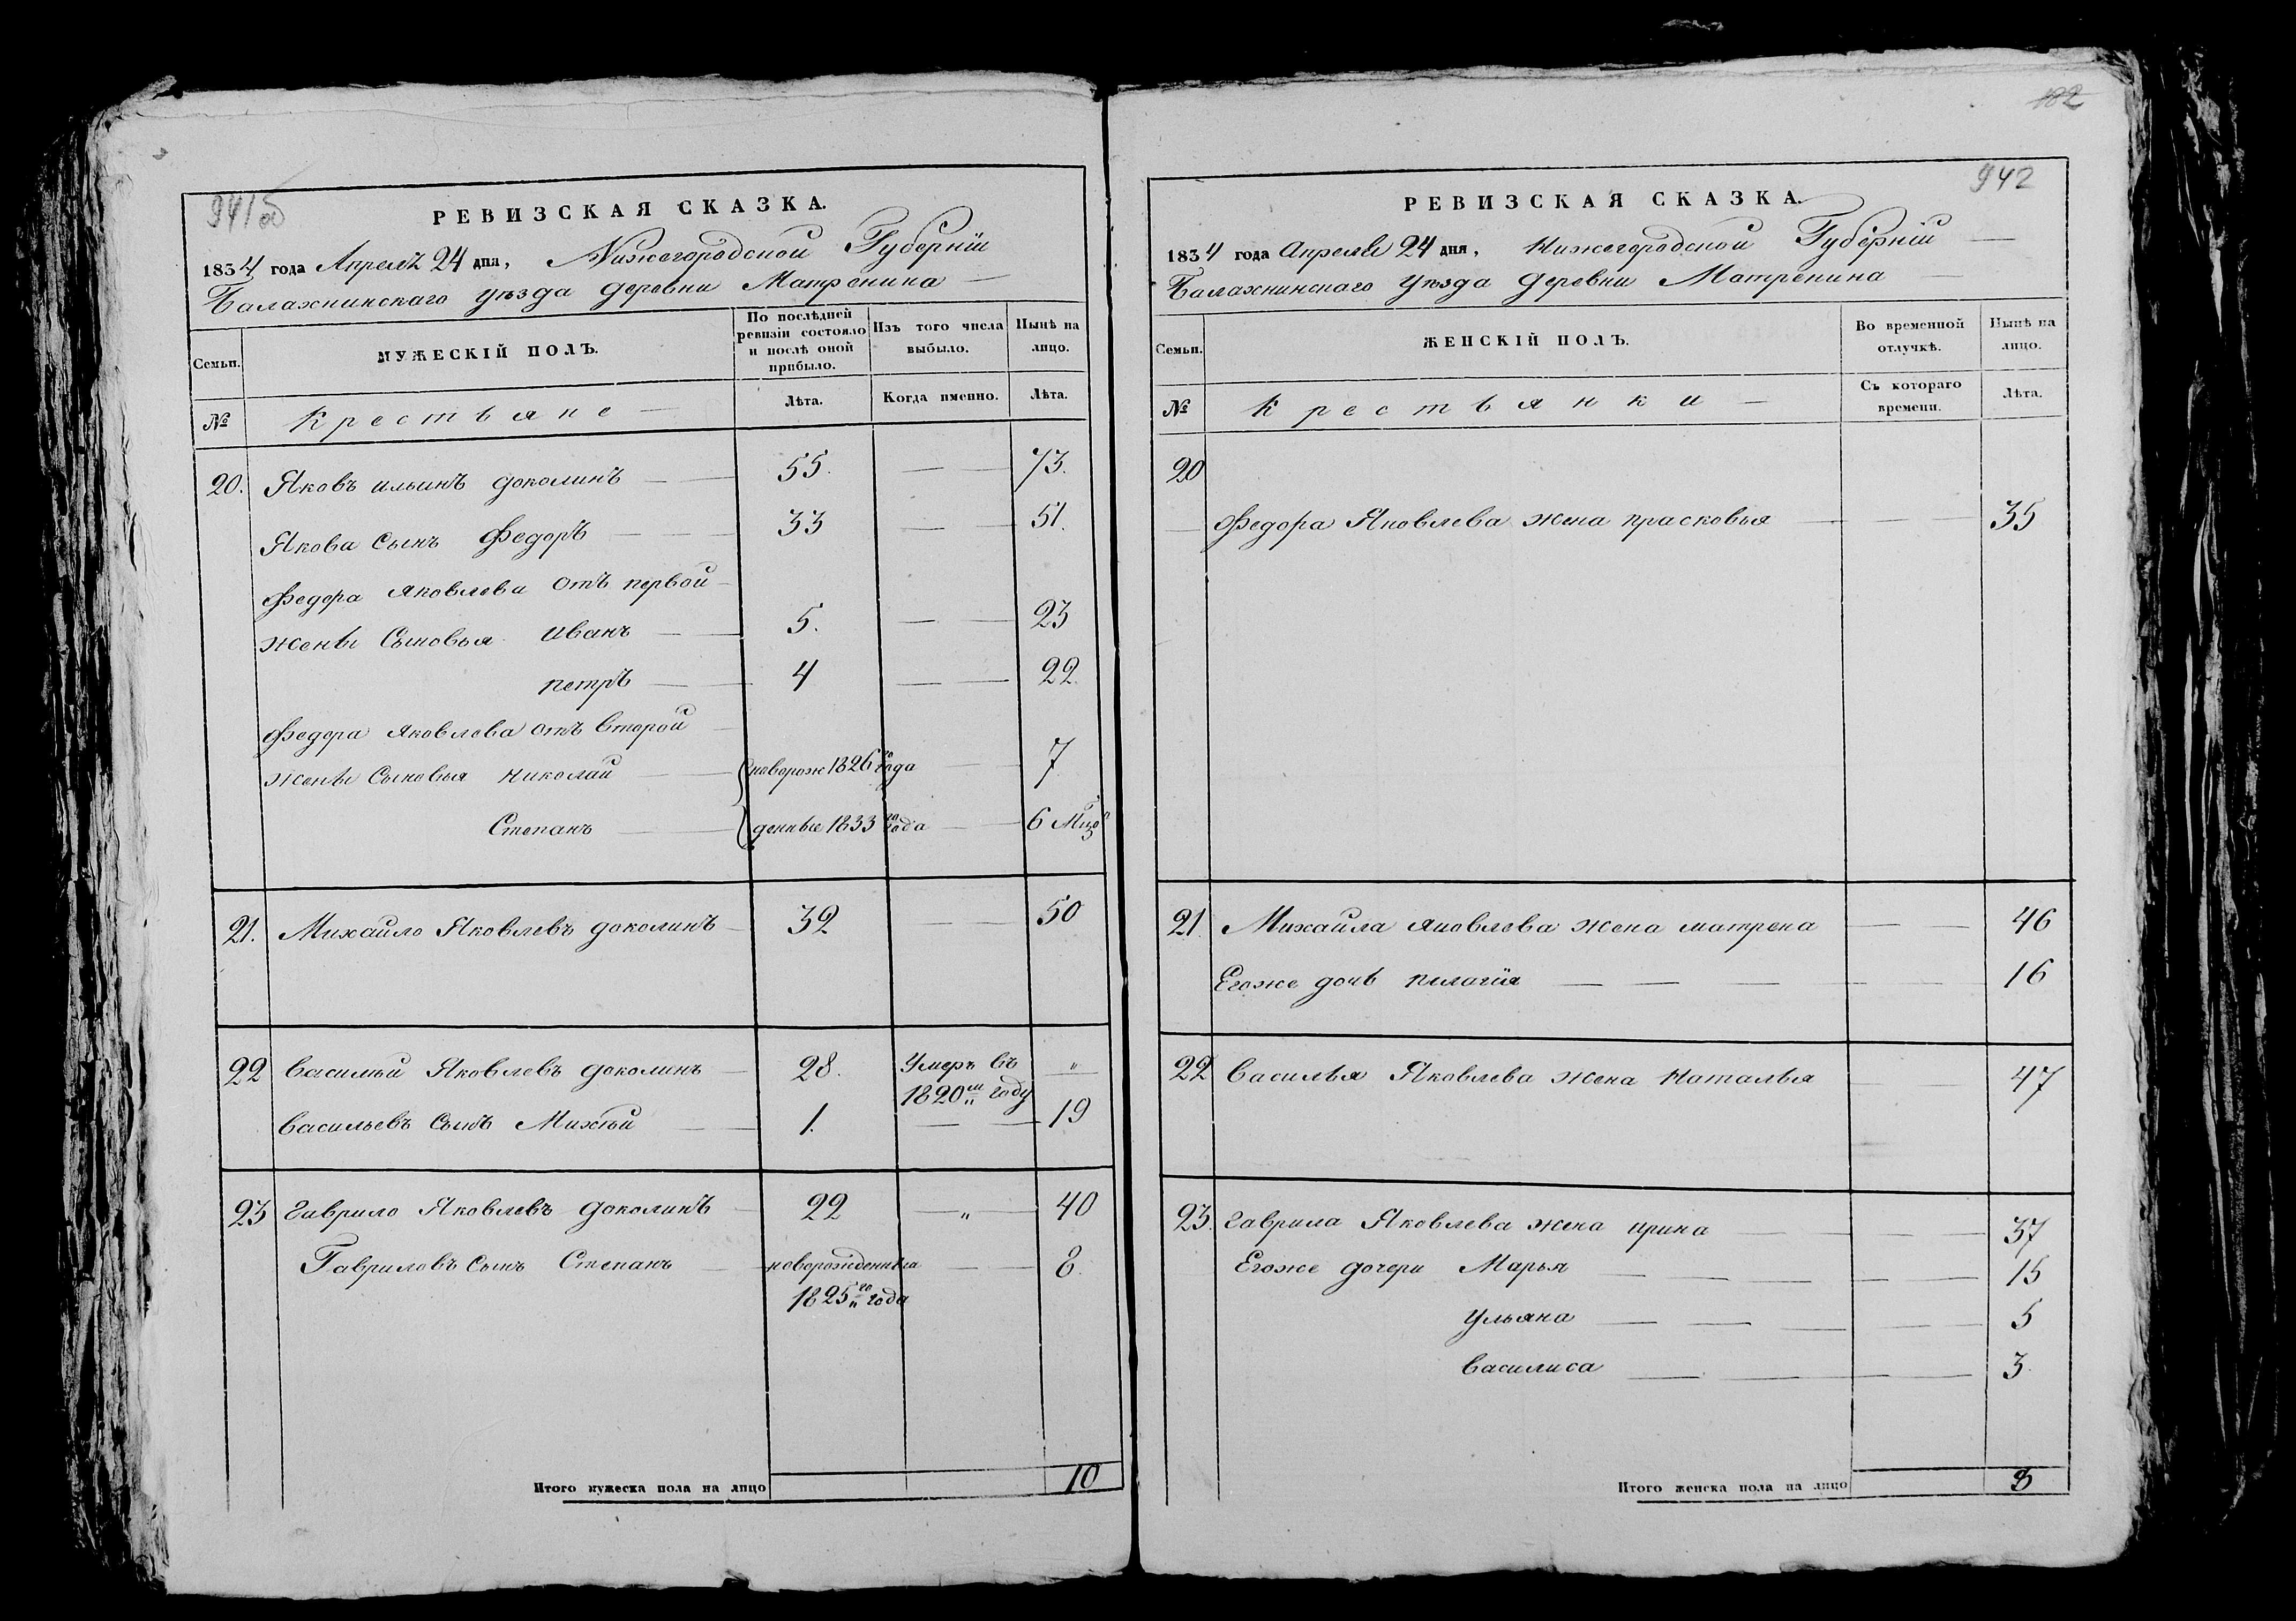 182
941об
РЕВИЗСКАЯ СКАЗКА.
1834 года Апреля 24 дня, Нижегородской Губернїи
Балахнинскаго уѣзда деревни Матренина
Семьи.
МУЖЕСКІЙ ПОЛЪ.
По послѣдней ревизіи состояло и послѣ оной прибыло.
Изъ того числа выбыло.
Нынѣ на лицо.
№
Крестьяне
Лѣта.
Когда именно.
Лѣта.
20. Яковъ ильинъ доколинъ 55. 73.
Якова сынъ Федоръ 33 51.
Федора яковлева отъ первой
жены сыновья иванъ 5. 23
петръ 4 22.
Федора яковлева отъ второй
жены сыновья николай новорож 1826го года 7
Степанъ денные 1833го года 6 Мцов
21. Михайло Яковлевъ доколинъ 32 50
22 василий Яковлевъ доколинъ 28. Умеръ въ 1820м году "
васильевъ сынъ Михей 1. 19
23 гаврило Яковлевъ доколинъ 22 " 40
Гавриловъ сынъ Степанъ новорожденный 1825го года 8.
Итого мужеска пола на лицо 10
942
РЕВИЗСКАЯ СКАЗКА.
1834 года апреля 24 дня, нижегородской Губернїи
Балахнинскаго уѣзда деревни Матренина
Семьи.
ЖЕНСКІЙ ПОЛЪ.
Во временной отлучкѣ.
Нынѣ на лицо.
№
Крестьянки
Съ котораго времени.
Лѣта.
20
Федора Яковлева жена прасковья 35
21 Михайла яковлева жена матрена 46
Егоже дочь пилагия 16
22 василья Яковлева жена наталья 47
23. гаврила Яковлева жена ирина 37
Егоже дочери Марья 15
ульяна 5
василиса 3.
Итого женска пола на лицо 8